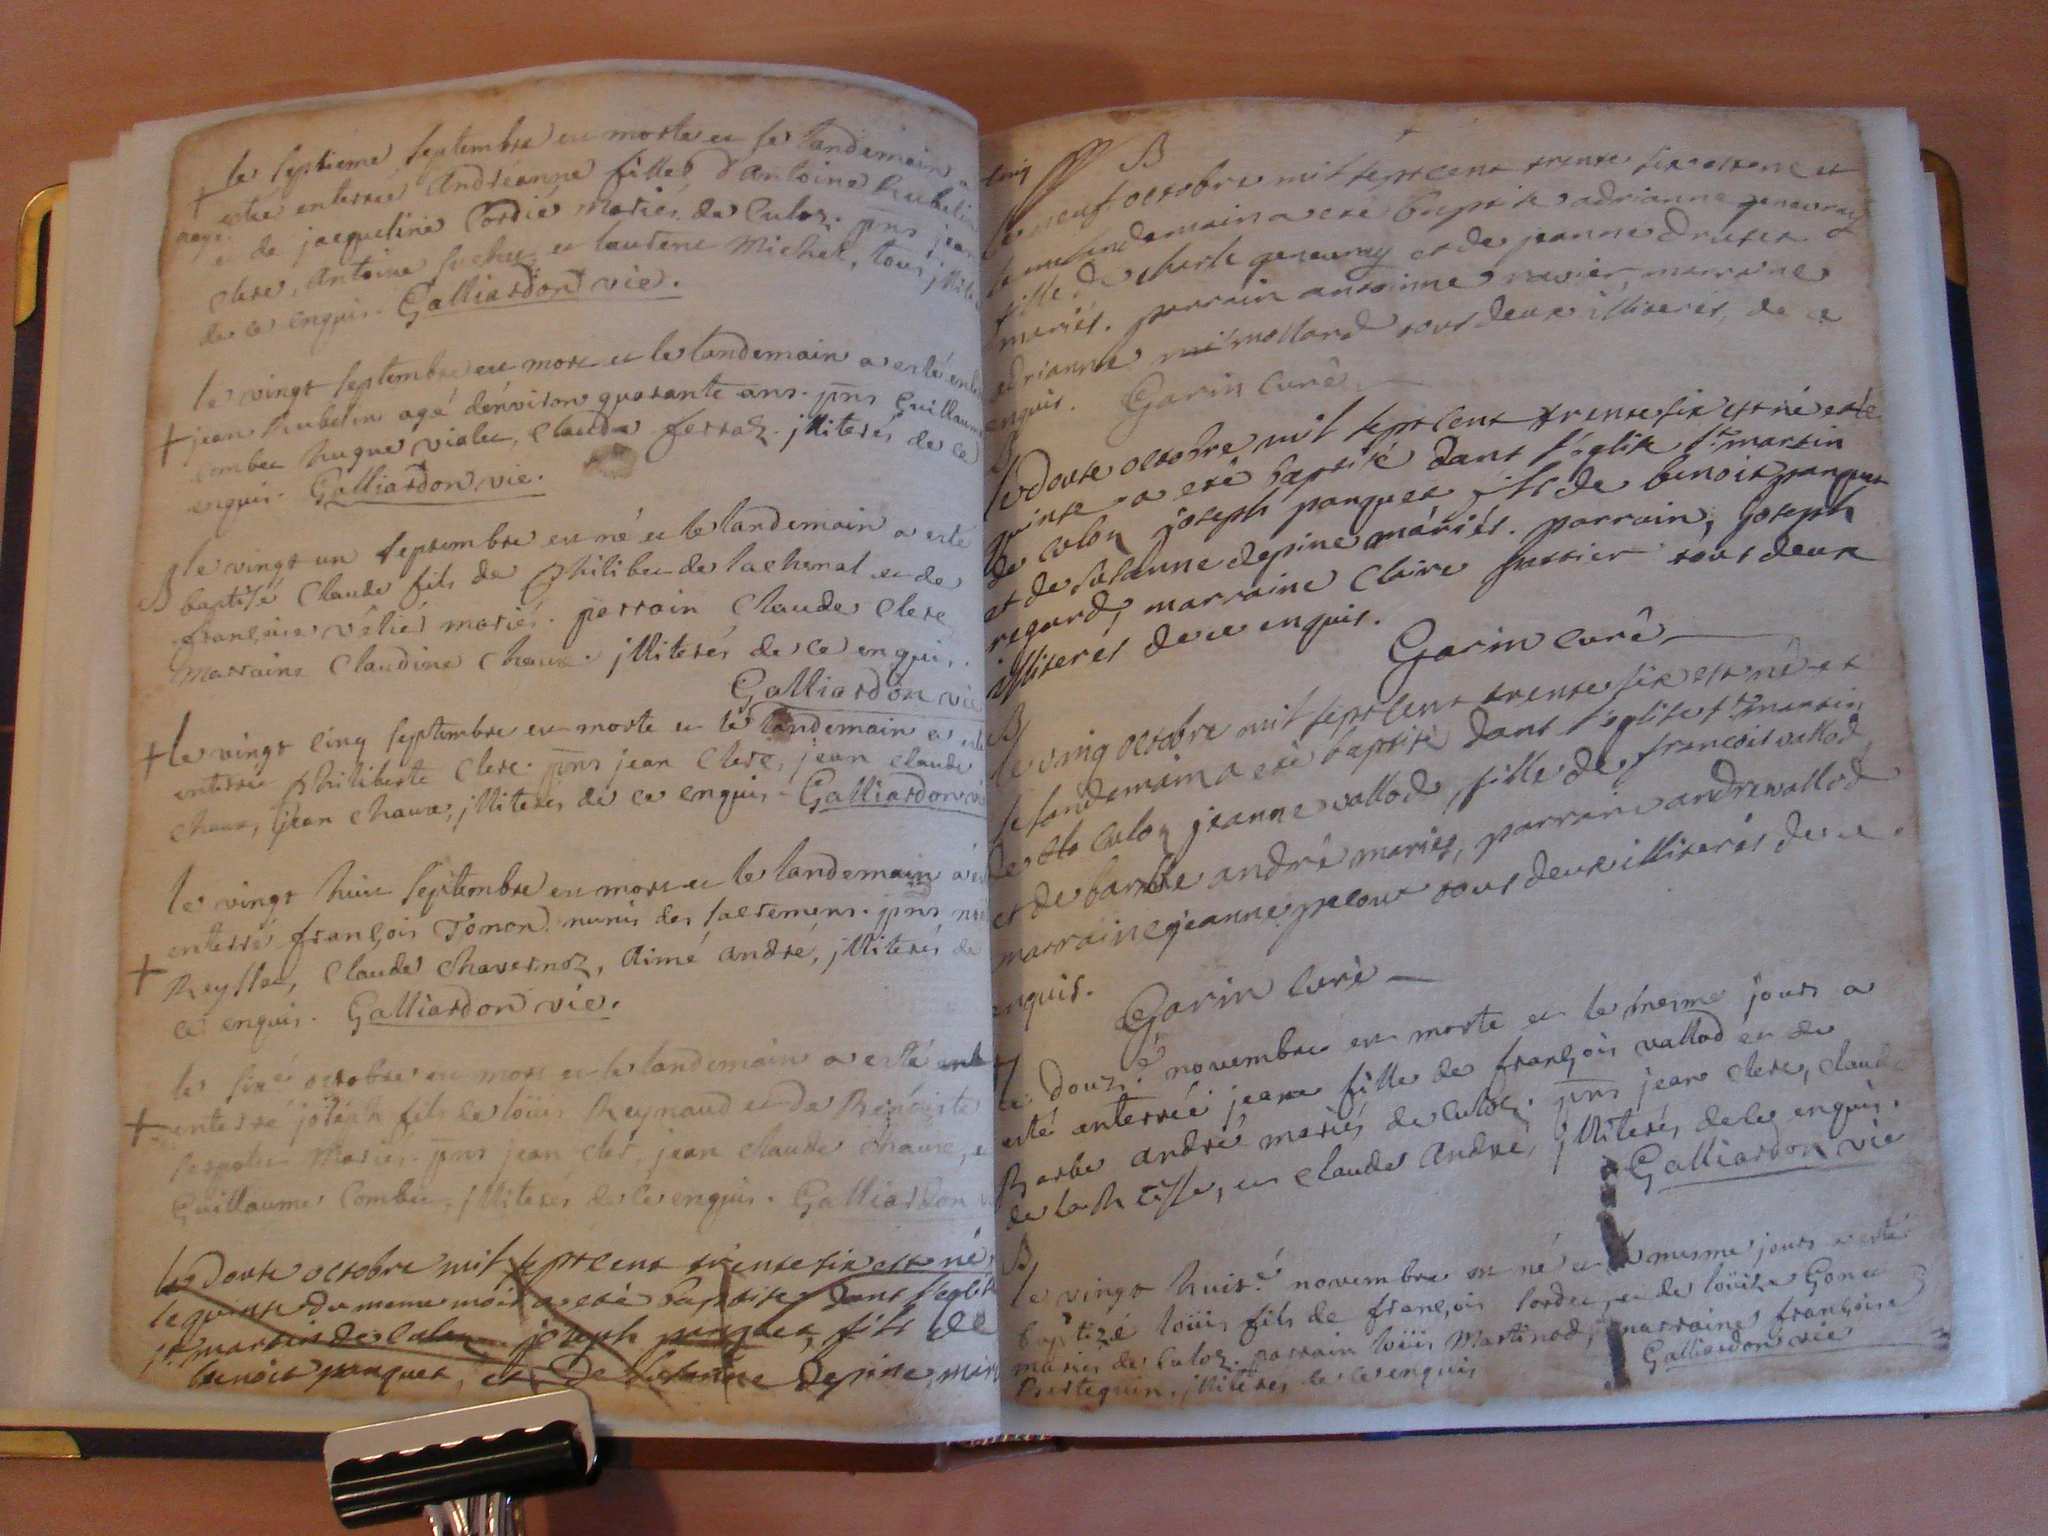 le septieme septembre est morte et le landemain a
+ estée enterrée Andréanne fille d'Antoine Rubelin
et de jacqueline Cordié mariés de Culoz. pns jean
Clerc, Antoine et laudene Michel, tous illite
de ce enquis. Galliardon vic.
le vingt septembre est mort et le landemain a esté ente
+ jean Rubelin agé dénviron quarante ans. pns Guillaume
Combet hugue violet, Claude ferraz. jlliterés de ce
enquis. Galliardon vic.
B le vingt un septembre est né et le landemain a esté
baptisé Claude fils de Philibert de lachenal et de
françoise mariés. parrain Claude Clerc
marraine Claudine Chaux. jlliterés de ce enquis.
Galliardon vic
+ le vingt cinq septembre est morte et le landemain a este
enterrée philiberte Clerc. pns jean Clerc, jean claude
chaux, jean chaux, jlliterés de ce enquis. Galliardon vi
le vingt huit septembre est mort et le landemain a es
enterré françois Tomon munis des sacremens. pns
+ Reyllet, Claude Chavernoz, Aimé andré, jlliterés de
ce enquis. Galliardon vic.
le sixe octobre est mort et le landemain a esté
+ enterré joseph fils de loüis Reynaud et de Benoiste
mariés. pns jean clerc, jean claude chaux, e
Guillaume Combet. jlliterés de ce enquis. Galliardon v
le douse octobre mil septcent trente six est né
le quinse du meme mois a eté baptise dant l'eglise
st martin de culoz joseph panquet, fils de
benoit panquet, et De Susanne Depine, mari
B
neuf octobre mil septcent trente six est né et
le landemain a eté baptisé adrianne genevray
fille de charle genevray et de jeanne Drutet
mariés. parrain antoinne ravier, marraine
adrianne mollard tous deux illiterés, de ce
enquis. Garin Curé
B
le Douse octobre mil septcent trente six est né et le
quinse a eté baptisé dant l'eglise st martin
de Culoz joseph panquet fils de benoit panquet
et de susanne depine mariés. parrain, joseph
regard, marraine Claire tous deux
illiterés de ce enquis.
Garin Curé
B
le ving octobre mil septcent trente six est né et
le landemain a eté baptisé dant l'eglise st martin
de Culoz jeanne vallod, fille de francois vallod
et de barbe andré mariés, parrain andre vallod
marraine jeanne pelou tous deux illiterés de ce
enquis. Garin Curé
le douz.e novembre est morte et le mesme jours a
esté enterrée jeane fille de françois vallod et de
Barbe andré mariés de Culoz. pns jean clerc, claude
de la et claude André, jlliterés de ce enquis.
Galliardon vic
B
le vingt huit.e novembre est né et le mesme jours a esté
baptizé loüis fils de françois Cordet, et de loüise Gonet
mariés de Culoz. parrain loüis Martinod, marraine françoise
Pertequin. jlliterés de ce enquis Galliardon vic